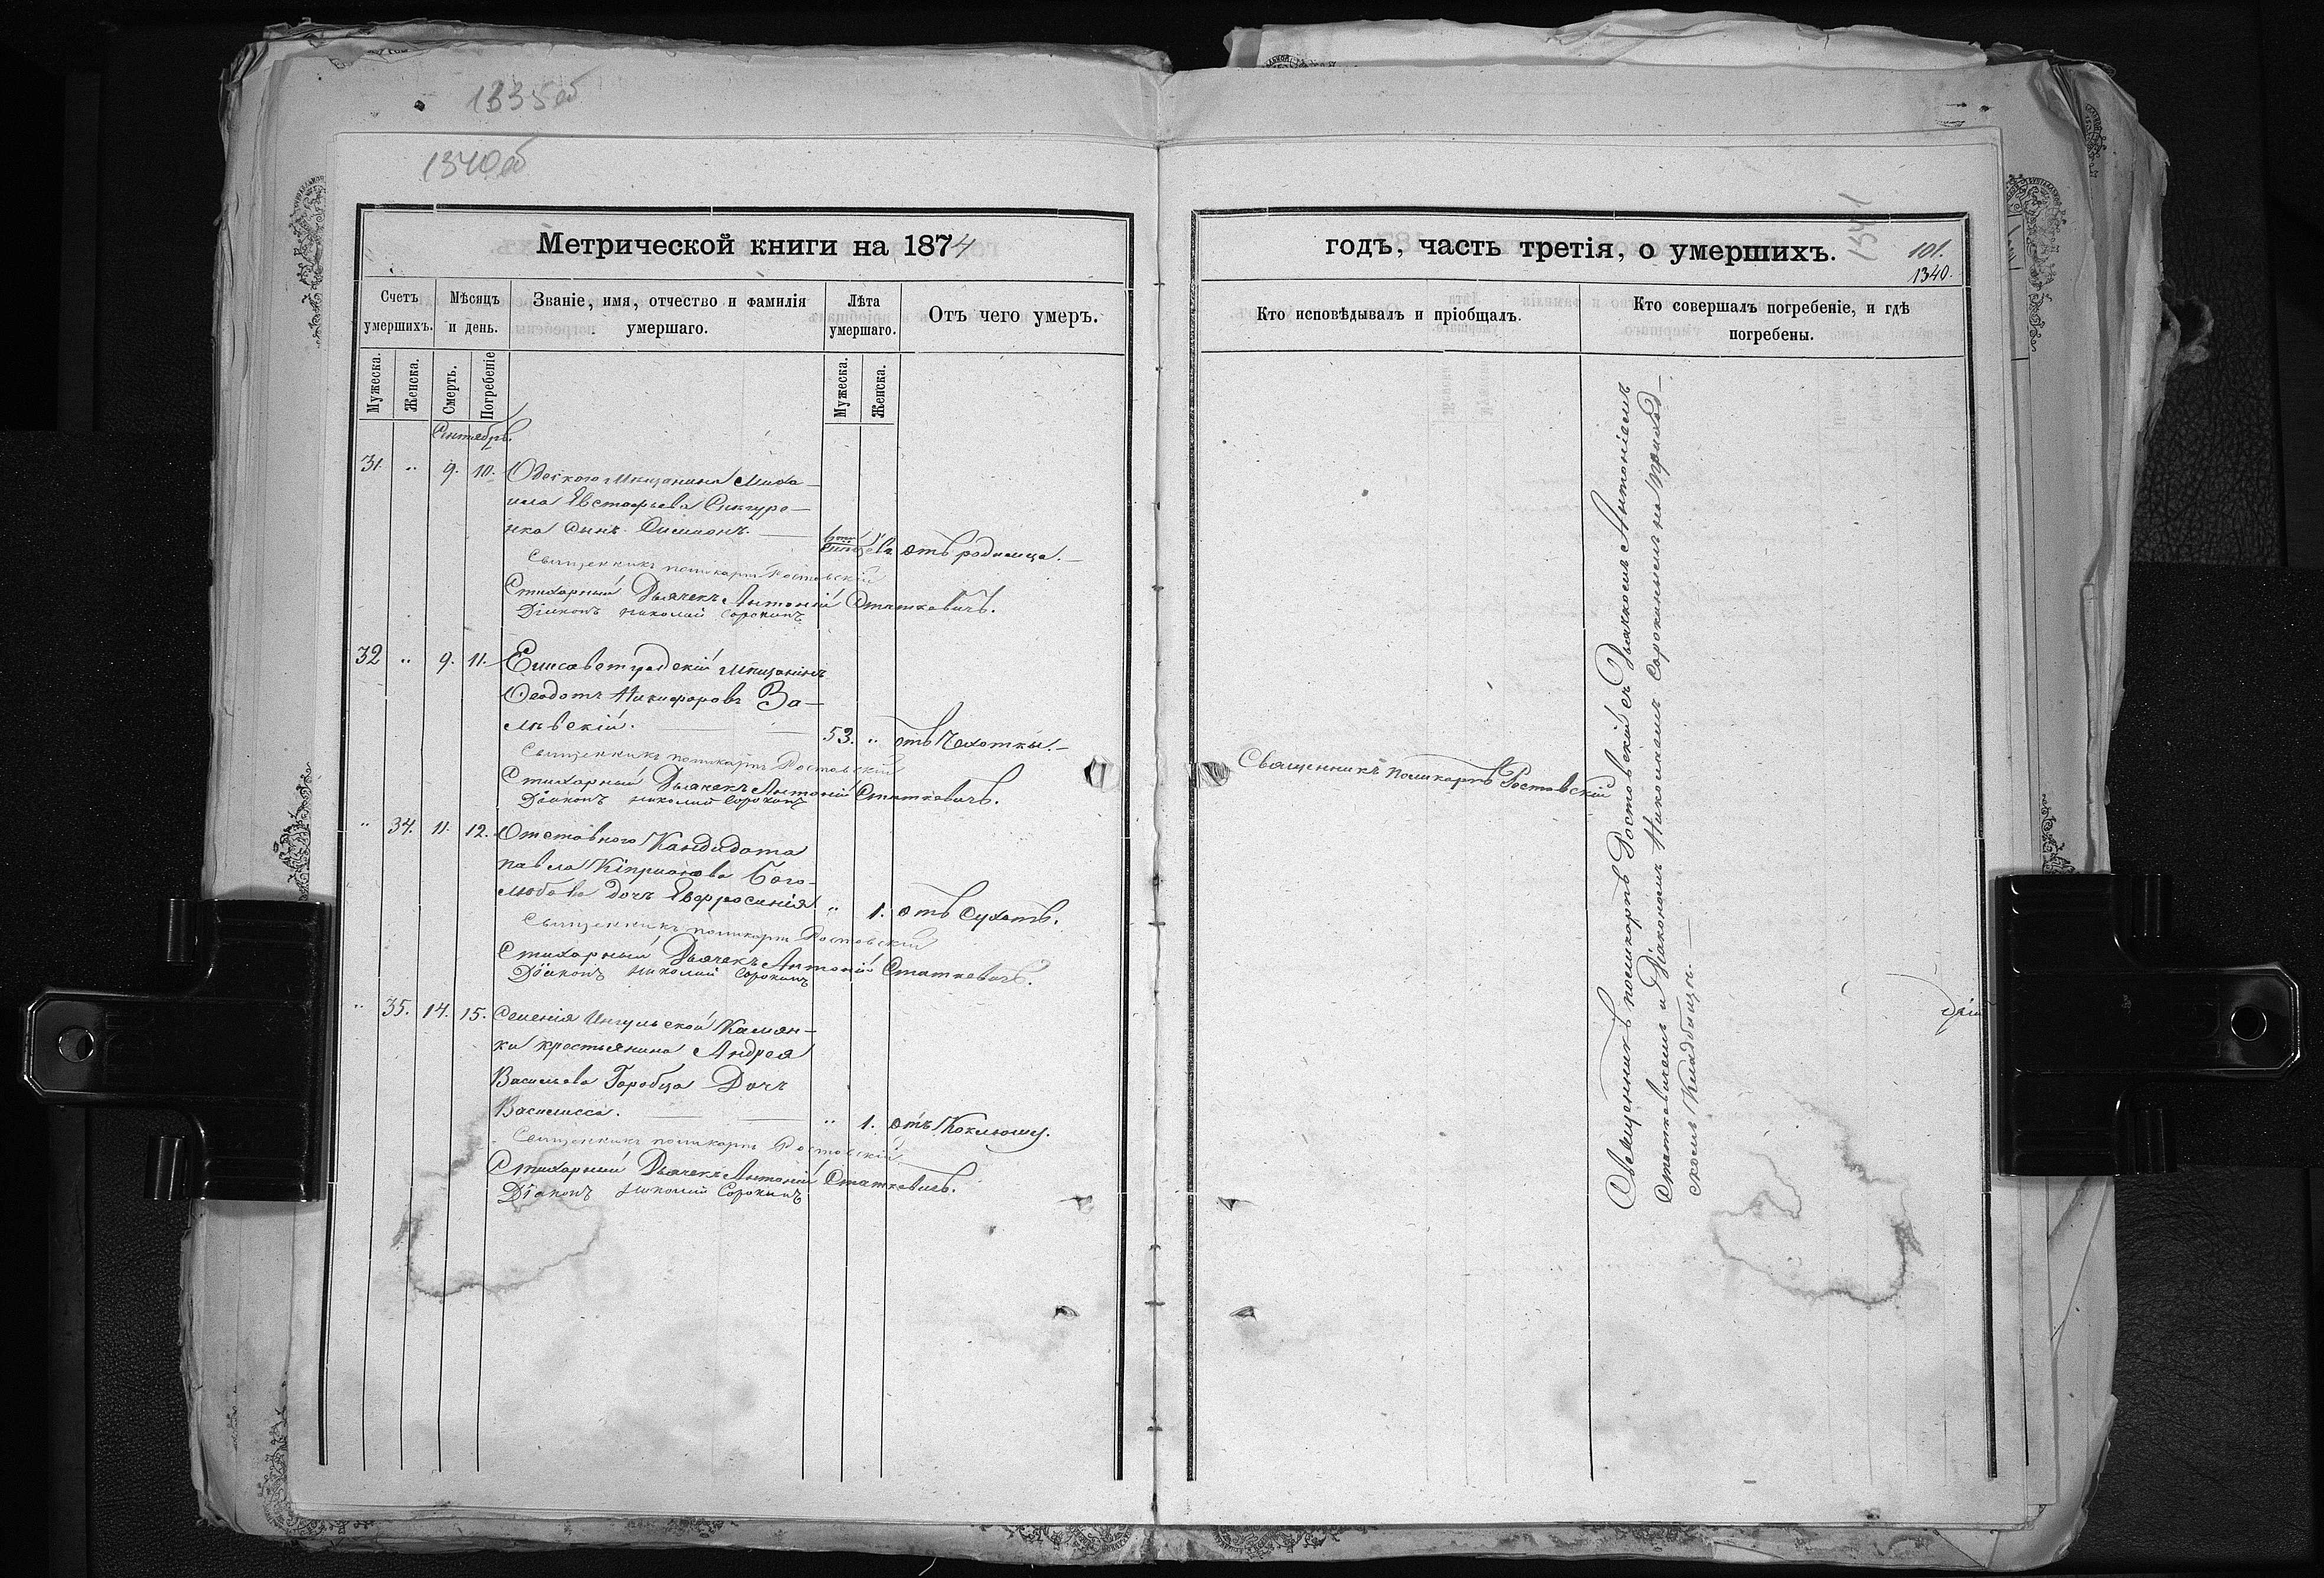 1335об
1340об
Метрической книги на 1874
Счетъ умершихъ.
Мѣсяцъ и день.
Званіе, имя, отчество и фамилія умершаго.
Лѣта умершаго.
Отъ чего умеръ.
Мужеска.
Женска.
Смерть.
Погребеніе
Мужеска.
Женска.
Сентябрь.
31. " 9. 10. Одескаго мѣщанина Миха-
ила Евстафьева
сынъ Симеонъ. отъ родимца.
Священникъ Поликарпъ Ростовскій
Стихарный Дьячекъ Антоній Статкевичъ.
Діаконъ Николай Сорокинъ
32 " 9. 11. Елисаветградскій мѣщанинъ
Ѳеодотъ Никифоровъ За-
лѣвскій. 53. " отъ Чахотки.
Священникъ Поликарпъ Ростовскій
Стихарный Дьячекъ Антоній Статкевичъ.
Діаконъ Николай Сорокинъ
" 34. 11. 12. Отставного Кандидата
Павла Кипріанова Бого-
любова дочь Евфросинія " 1. отъ Сухотъ.
Священникъ Поликарпъ Ростовскій
Стихарный Дьячекъ Антоній Статкевичъ.
Діаконъ Николай Сорокинъ
" 35. 14. 15. Селенія Ингульской Камян-
ки крестьянина Андрея
Васильева Горобца Дочь
Василисса. " 1. отъ Коклюшу.
Священникъ Поликарпъ Ростовскій
Стихарный Дьячекъ Антоній Статкевичъ.
Діаконъ Николай Сорокинъ
годъ, часть третія, о умершихъ.
1341
101.
1340.
Кто исповѣдывалъ и пріобщалъ.
Кто совершалъ погребеніе, и гдѣ погребены.
Священникъ Поликарпъ Ростовскій
Священникъ Поликарпъ Ростовскій съ Дьячкомъ Антоніемъ
Статкевичемъ и Діакономъ Николаемъ Сорокинымъ на приход-
скомъ Кладбищѣ.